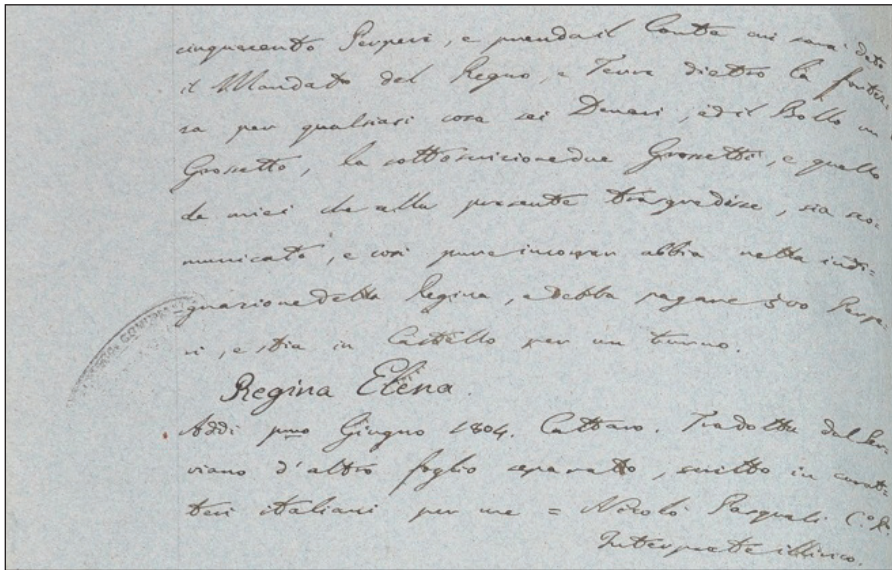 cinquecento Perperi, e prenda il Conte cui sara' dato
il Mandato del Regno, e Terre dietro la
sa per qualsiasi cosa sei Denari, ed il Bollo un
Grossetto, la sottoscrizione due Grossetti, e quello
de miei che alla presente trasgredisse, sia sco-
municato, e così pure incorrer abbia nella indi-
gnazione della Regina, e debba pagare 500 Perpe
ri, e stia in Castello per un turno.
Regina Elena.
Addi pmo Giugno 1804. Cattaro. Tradotta dal Ser
viano d'altro foglio separatto, scritto in caratt
teri italiani per me = Nicolò Pasquali C.º R.
Interprete illirico.